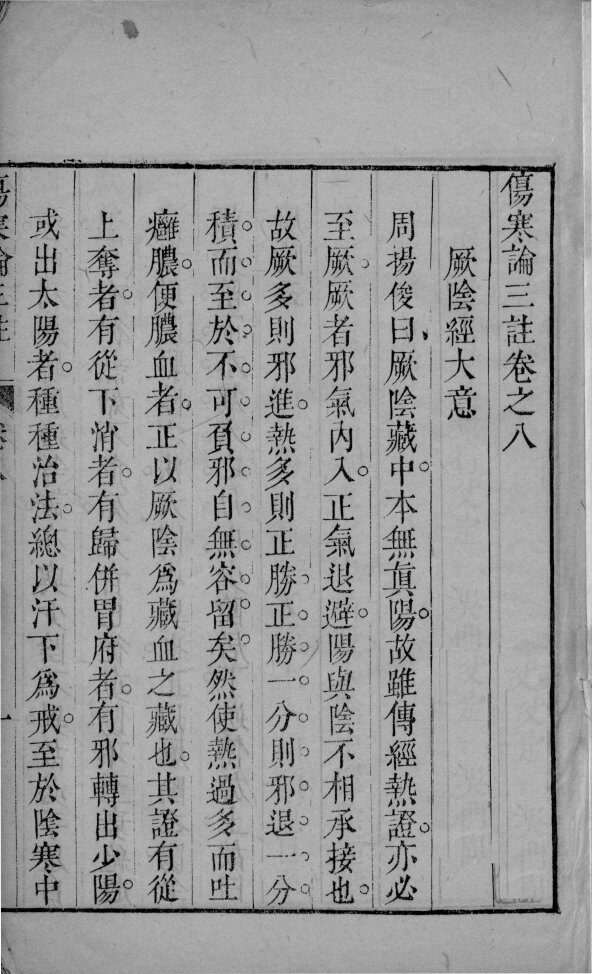 傷寒論三註卷之八
厥陰經大意
周揚俊曰厥陰藏中。本無眞陽。故雖傳經熱證。亦必
至厥。厥者邪氣內入。正氣退避。陽與陰不相承接也。
故厥多則邪進。熱多則正勝。正勝一分。則邪退一分。
積而至於不可負。邪自無容留矣。然使熱過多而吐
癰膿。便膿血者。正以厥陰爲藏血之藏也。其證有從
上奪者。有從下消者。有歸併胃府者。有邪轉出少陽。
或出太陽者。種種治法。總以汗下爲戒。至於陰寒中
傷寒論三註
卷八
一